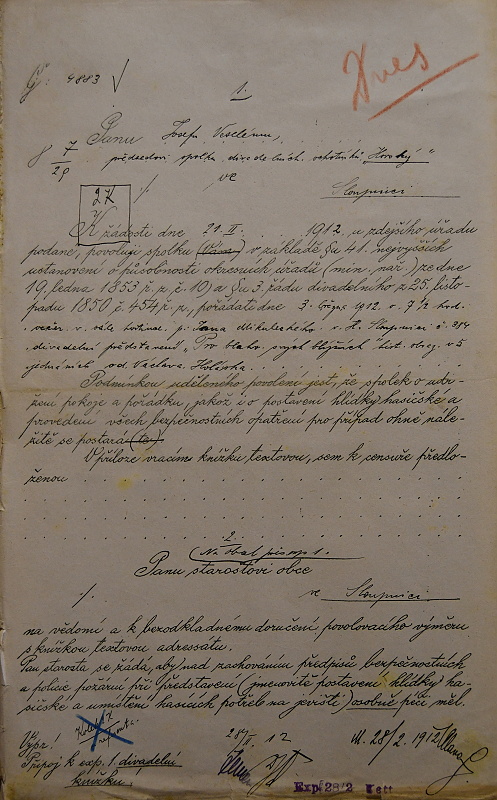 Č: 4883
Dnes
1.
Panu Josefu Veselému,
předsedovi spolku divadelních ochotníků „Horský“
ve
Sloupnici
K žádosti dne 21. II. 1912 u zdejšího úřadu
podané, povoluji spolku (Vám) v základě §u 41. nejvyšších
ustanovení o působnosti okresních úřadů (min. nař.) ze dne
19. ledna 1853 ř. z. č. 10) a §u 3. řádu divadelního z 25. listo-
padu 1850 č. 454 ř. z., pořádati dne 3. března 1912 o 7 1/2 hod.
večer v sále hostince p. Jana Mikuleckého v H. Sloupnici č.
divadelní představení „Pro blaho svých bližních“ v 5
jednáních od Václava
Podmínkou uděleného povolení jest, že spolek o udr-
žení pokoje a pořádku, jakož i o postavení hlídky hasičské a
provedení všech bezpečnostních opatření pro případ ohně nále-
žitě se postará (te).
V příloze vracím knížku textovou, sem k censuře předlo-
ženou
2.
(Na obal písmp 1.
Panu starostovi obce
ve Sloupnici
na vědomí a k bezodkladnému doručení povolovacího výměru
s knížkou textovou adressátu.
Pan starosta se žádá, aby nad zachováním předpisů bezpečnostních
a policie požární při představení (jmenovitě postavení hlídky ha-
sičské a umístění hasicích potřeb na jevišti) osobně péči měl.
Vypr!
M. 28/2. 1912
Připoj k exp. 1. divadelní
knížku.
Exp. 28/2